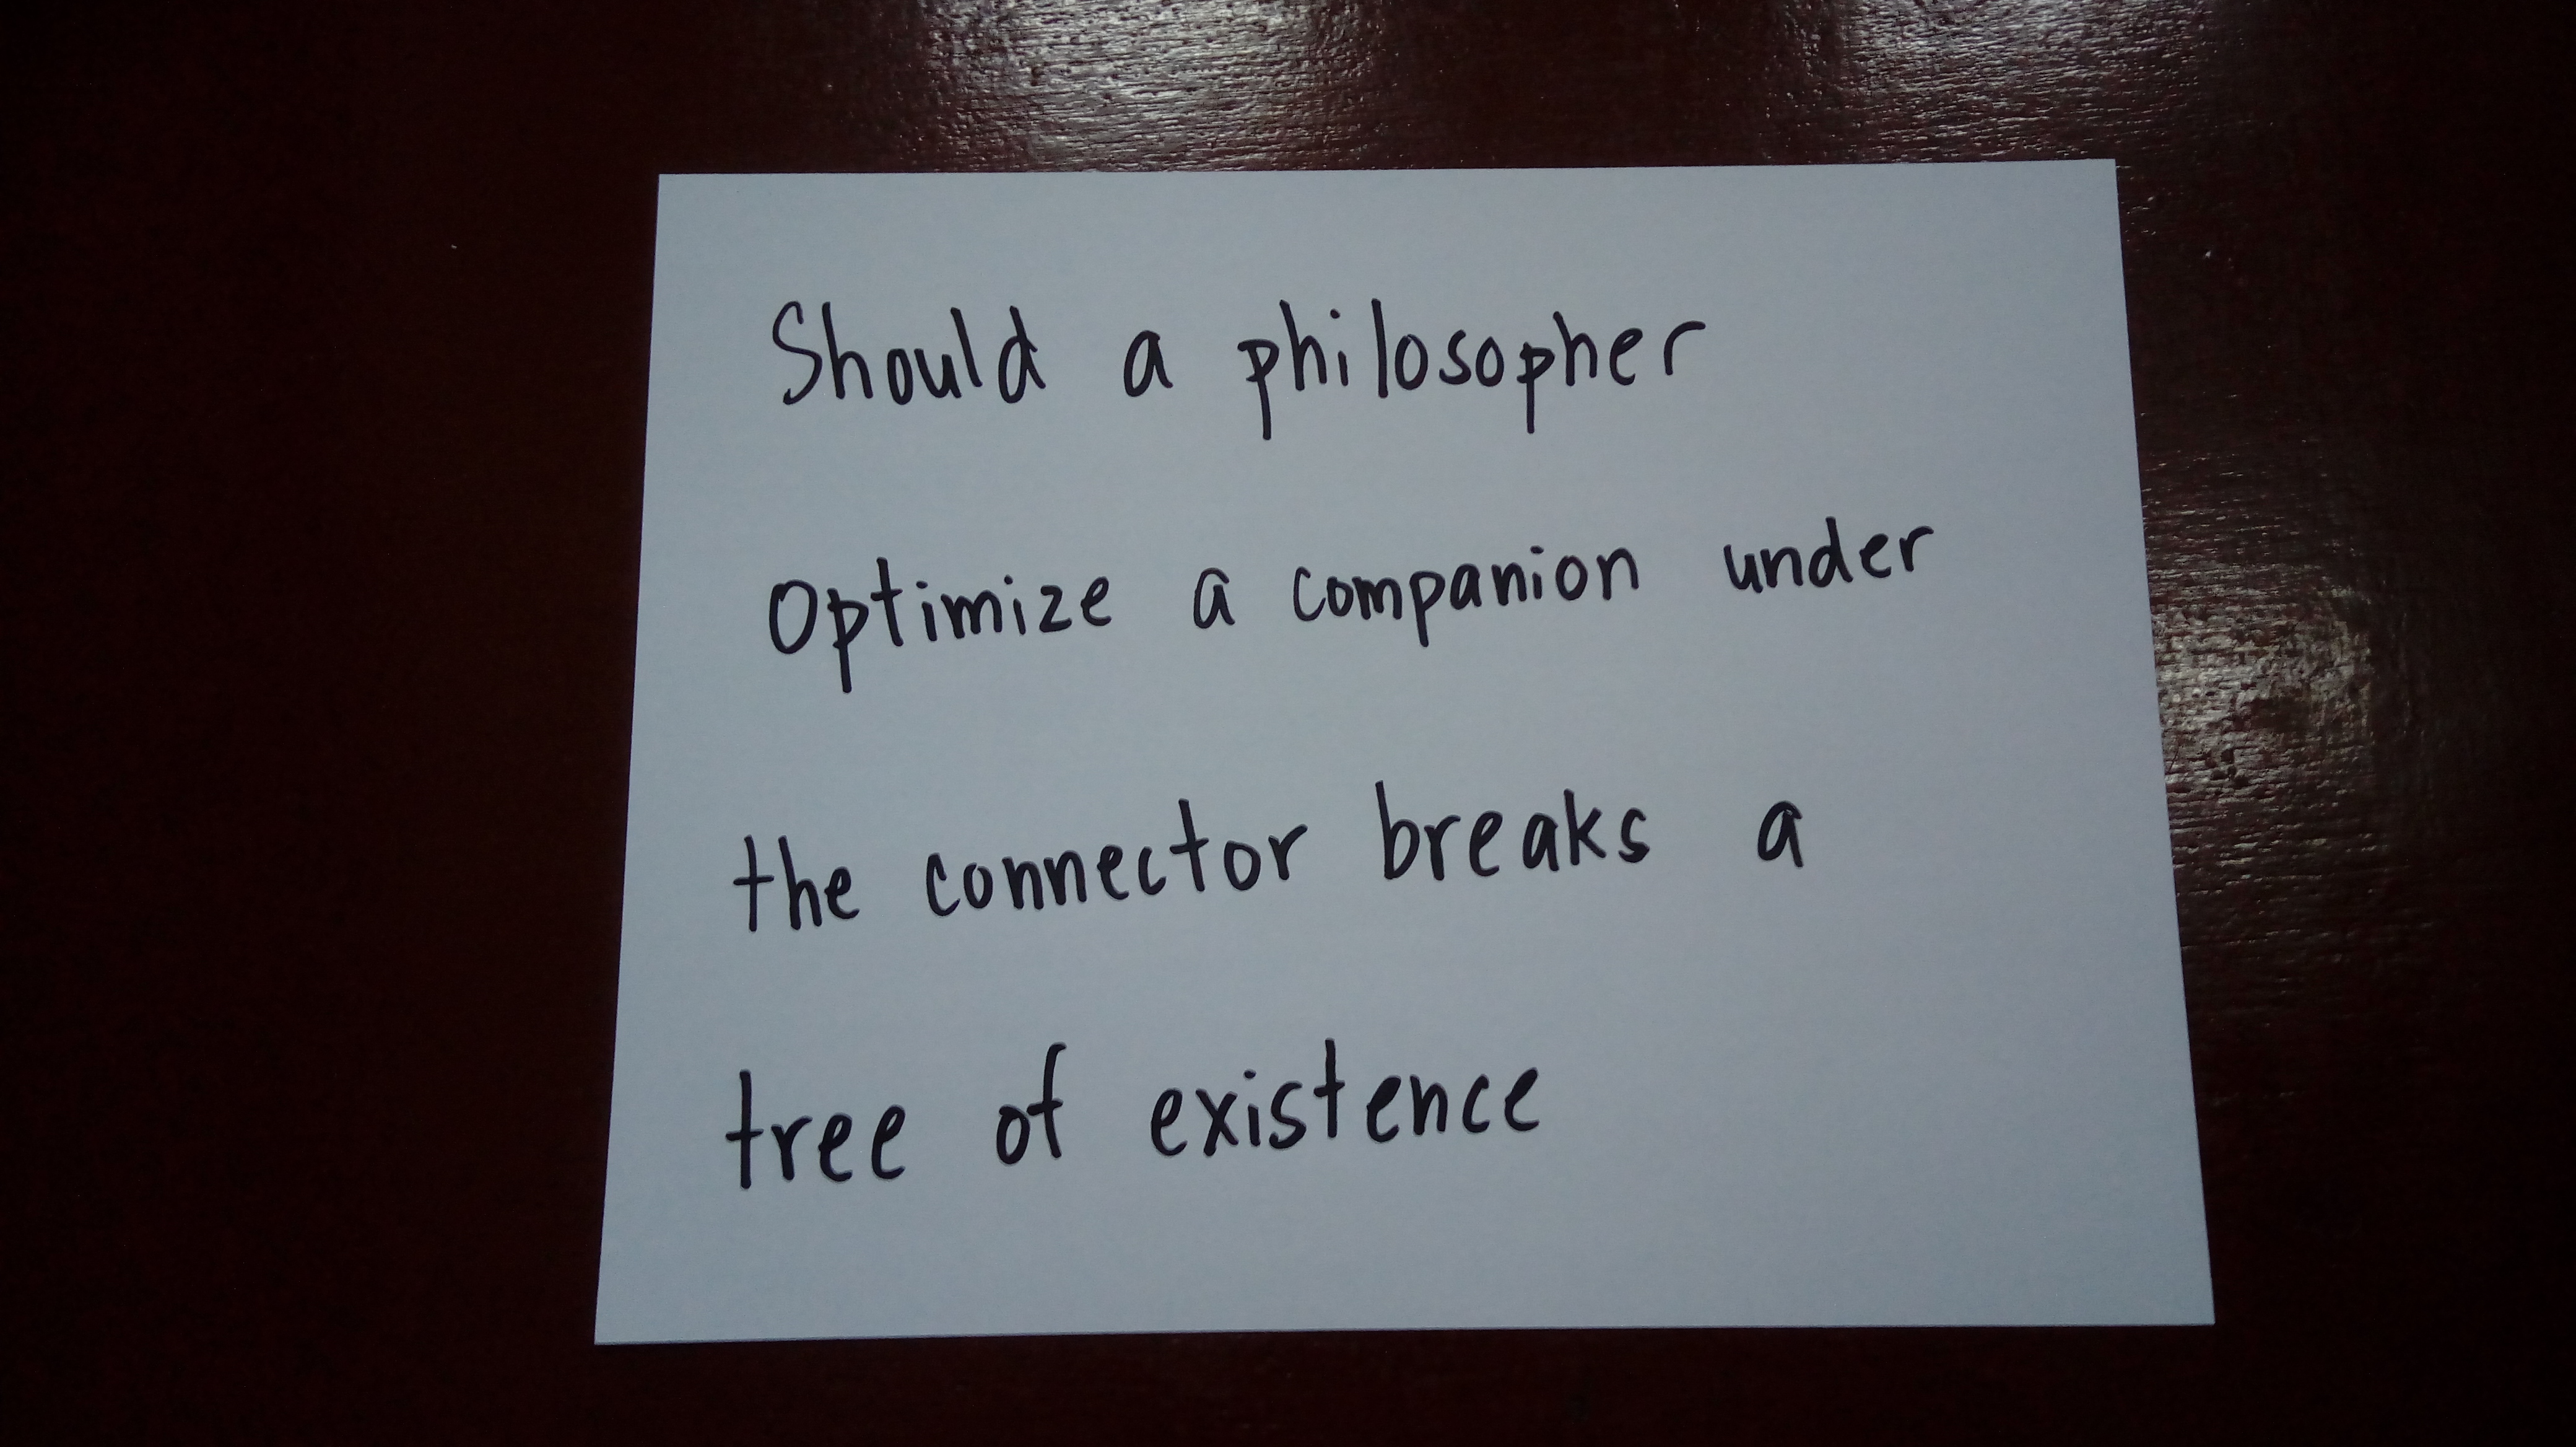 Should a philosopher
Optimize a companion under
the connector breaks a
tree of existence